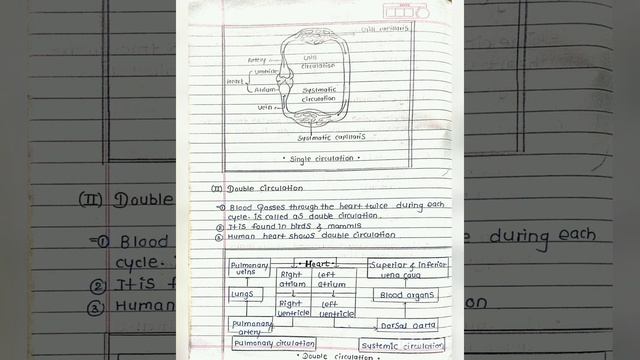 Gill capillaris
Artery
Gill
circulation
Ventricle
Heart
Atrium
Systmatic
circulation
Vein
Systmatic capillaris
• Single circulation •
(II) Double circulation
① Blood Passes through the heart twice during each
cycle. is called as double circulation.
② It is found in birds & mammls
③ Human heart shows double circulation
• Heart •
Pulmonary
veins
Right
atrium
Left
atrium
Superior & inferior
vena cava
Lungs
Right
ventricle
Left
ventricle
Blood organs
Pulmonary
artery
Dorsal oarta
Pulmonary circulation
Systemic circulation
• Double circulation •
(II) Double
① Blood
cycle.
② It is f
③ Human
during each
on